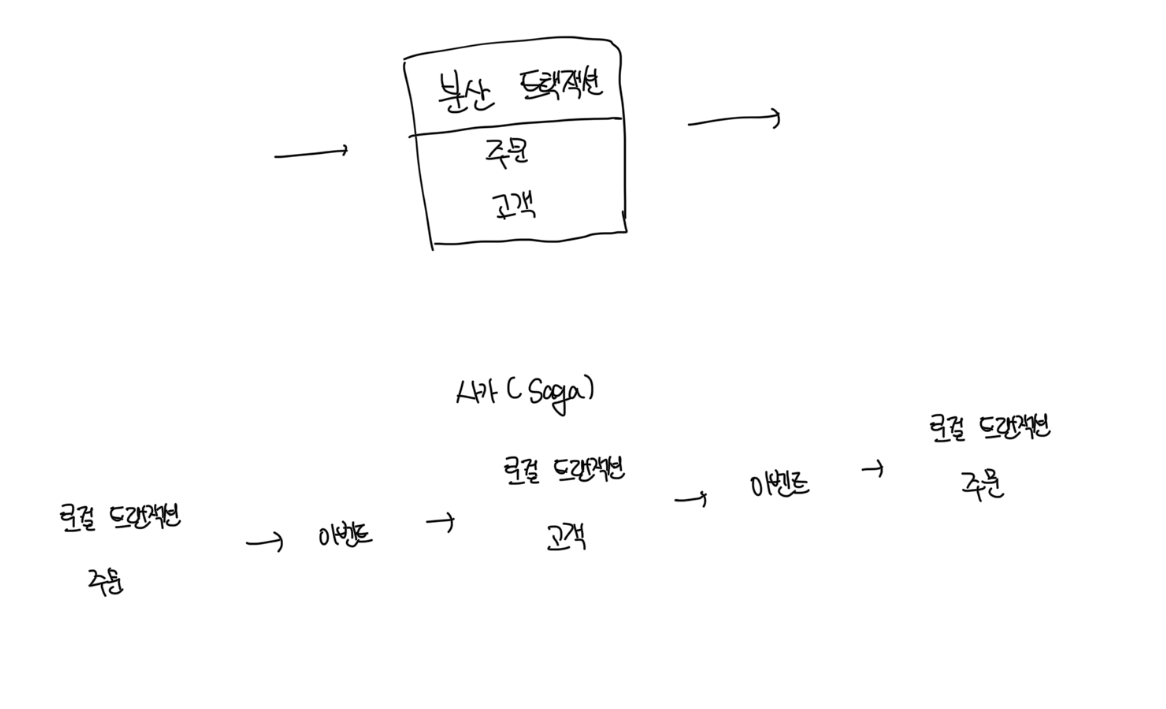 분산 트랙잭션
주문
고객
사가(Saga)
로컬 트랜잭션
주문
이벤트
로컬 트랜잭션
고객
이벤트
로컬 트랜잭션
주문